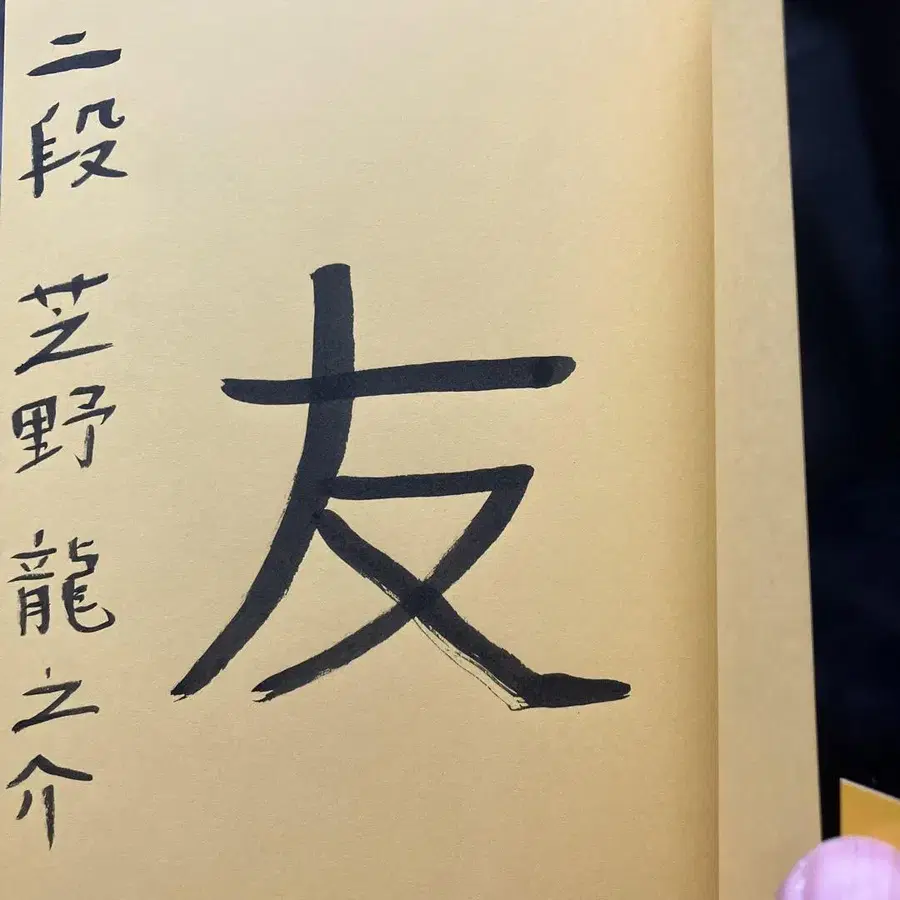 友
二段 芝野 龍之介